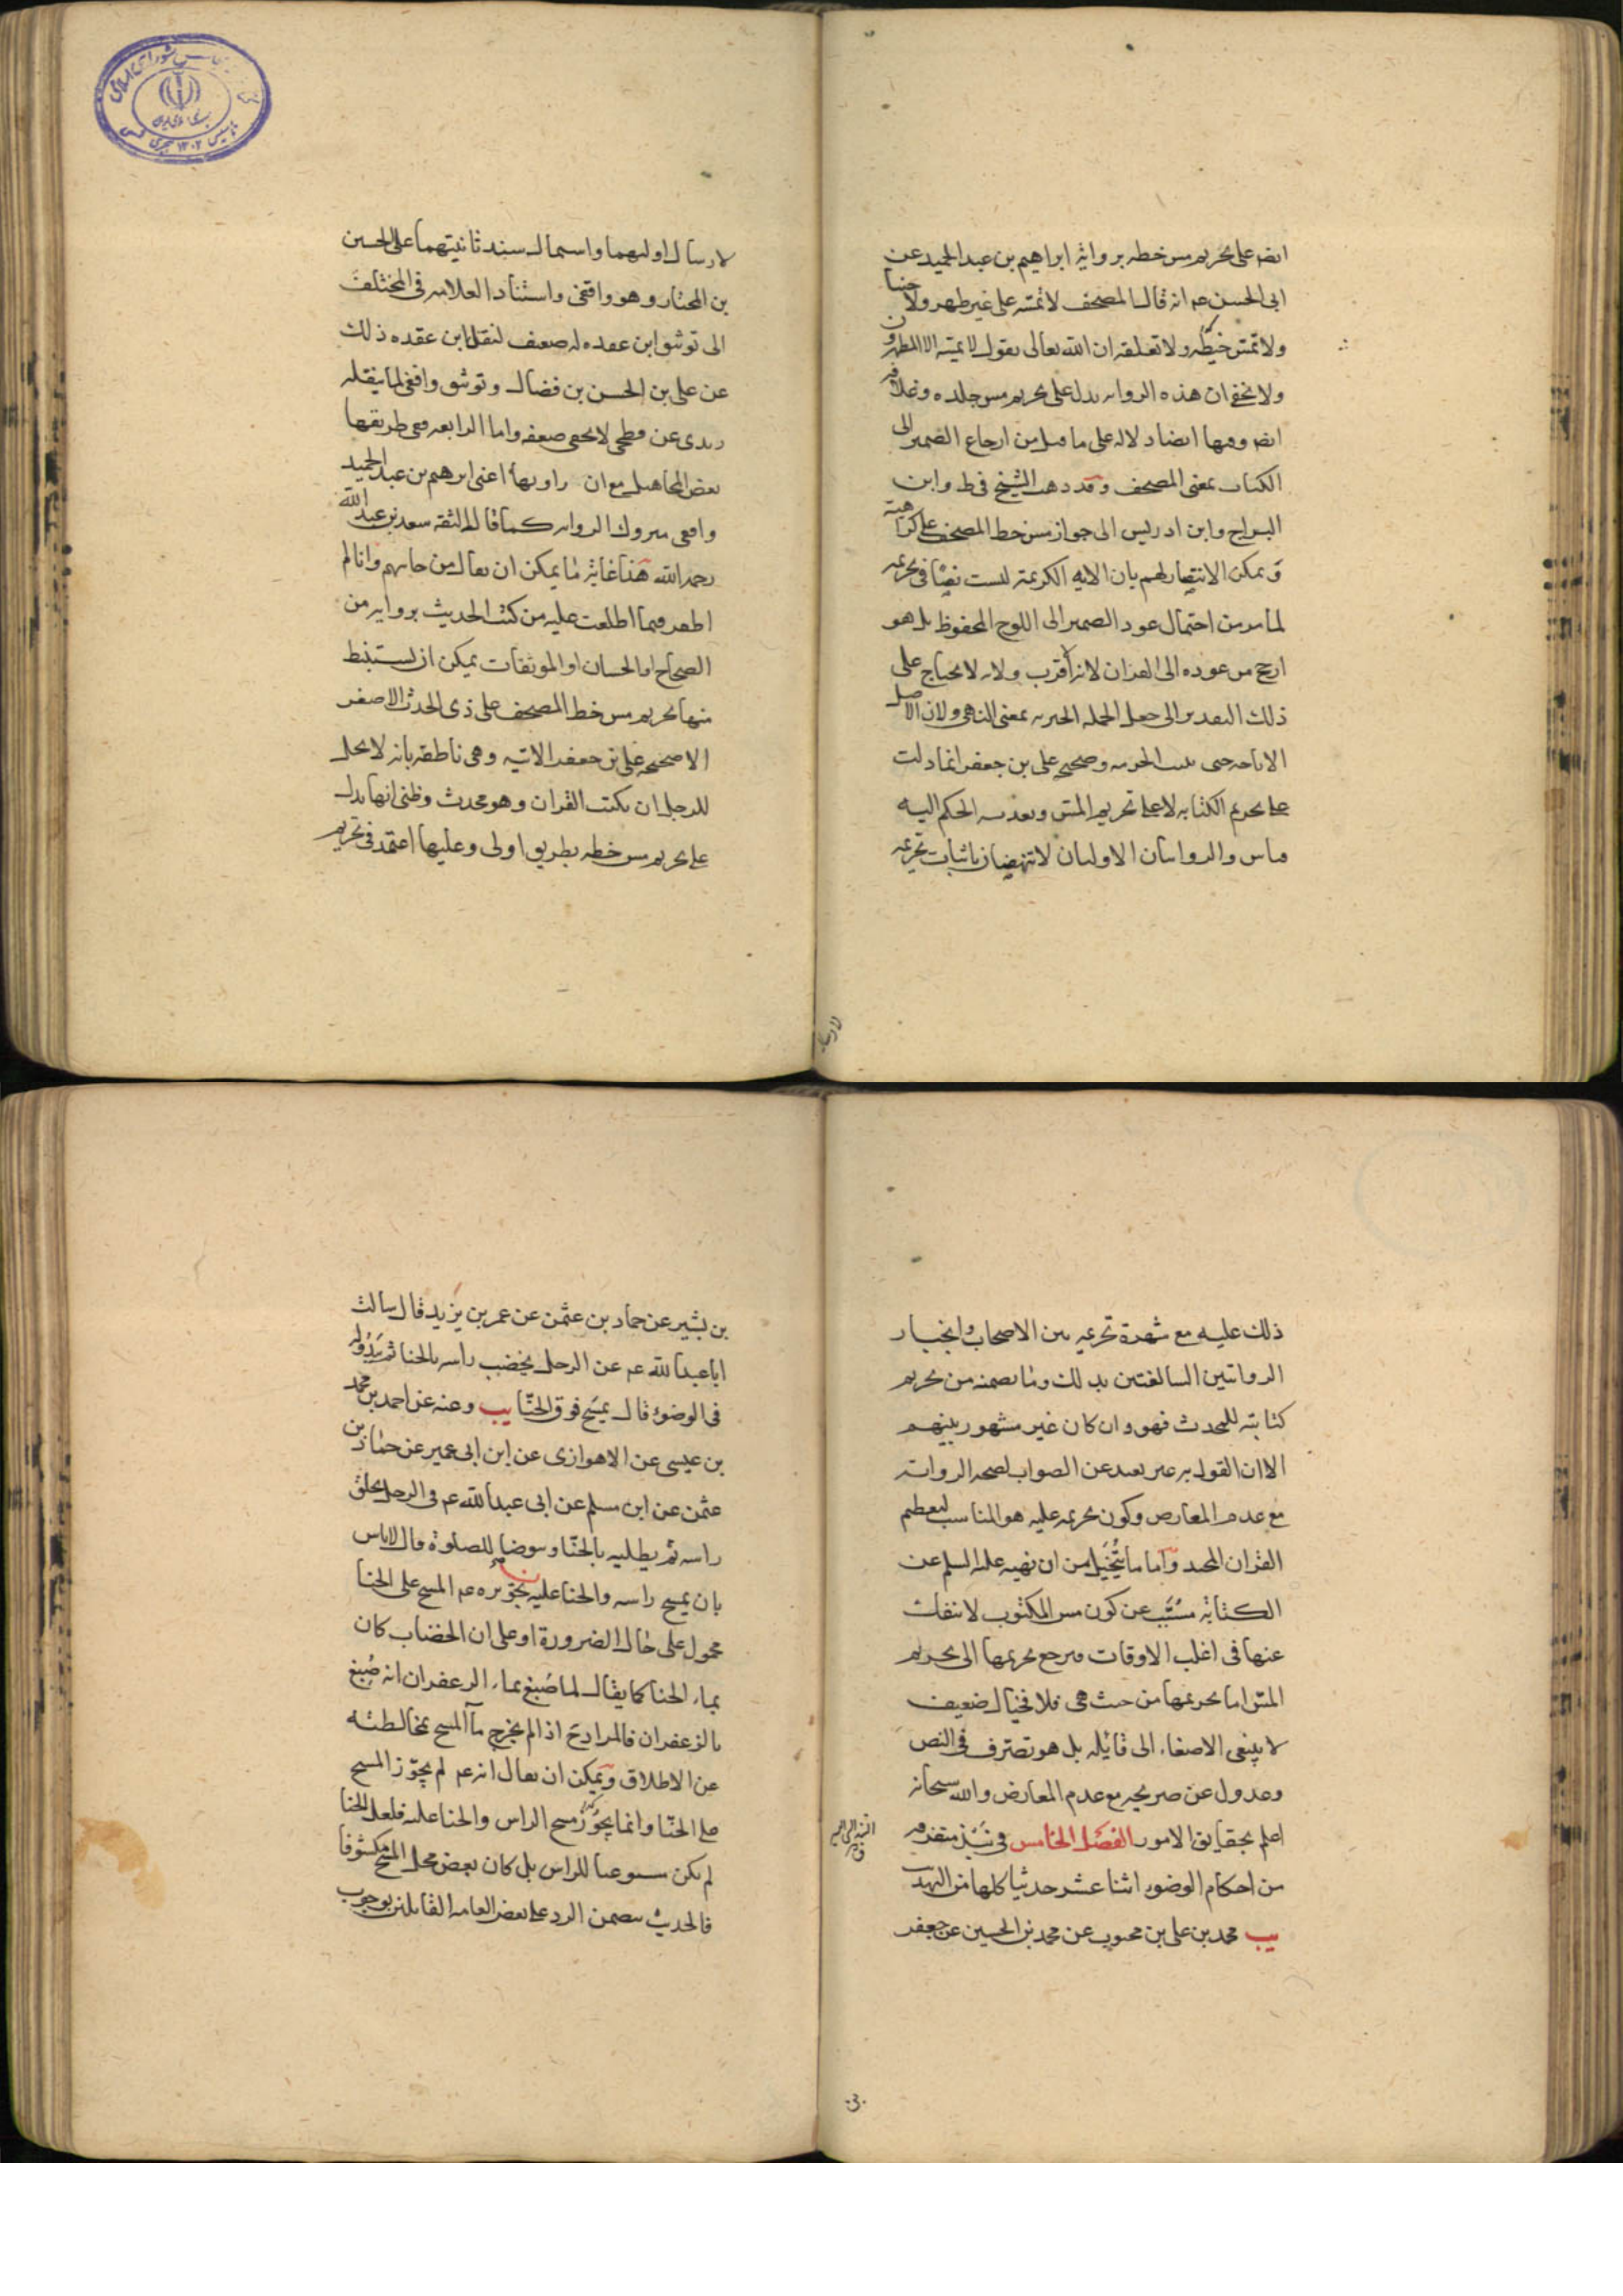 ايضا على تحريم مس خطه برواية ابراهيم بن عبد الحميد عن
ابى الحسن عم انه قال المصحف لا تمسه على غير طهر ولا جنبا
ولا تمس خيطه ولا تعلقه ان الله تعالى يقول لا يمسه الا المطهرون
ولا يخفى ان هذه الرواية تدل على تحريم مس جلده وغلافه
ايضا وفيها ايضا دلالة على ما قيل من ارجاع الضمير الى
الكتاب بمعنى المصحف وقد ذهب الشيخ فى ط وابن
البراج وابن ادريس الى جواز مس خط المصحف على كراهية
ويمكن الانتصار لهم بان الاية الكريمة ليست نصا فى تحريمه
لما مر من احتمال عود الضمير الى اللوح المحفوظ بل هو
ارجح من عوده الى القران لانه اقرب ولانه لا يحتاج على
ذلك التقدير الى جعل الجملة الخبرية بمعنى النهى ولان الاصل
الاباحة حتى يثبت الحرمة وصحيحة على بن جعفر انما دلت
على تحريم الكتابة لا على تحريم المس وتعدية الحكم اليه
قياس والروايتان الاوليان لا تنهضان باثبات تحريمه
لارسا
لارسال اوليهما واشتمال سند ثانيتهما على الحسين
بن المختار وهو واقفى واستناد العلامة فى المختلف
الى توثيق ابن عقده له ضعيف لنقل ابن عقده ذلك
عن على بن الحسن بن فضال وتوثيق واقفى لما ينقله
زيدى عن فطحى لا يخفى ضعفه واما الرابعة ففى طريقها
بعض المجاهيل مع ان راويها اعنى ابرهيم بن عبد الحميد
واقفى متروك الرواية كما قاله الثقة سعد بن عبد الله
رحمه الله هذا غاية ما يمكن ان يقال من جانبهم وانا لم
اظفر فيما اطلعت عليه من كتب الحديث برواية من
الصحاح او الحسان او الموثقات يمكن ان يستنبط
منها تحريم مس خط المصحف على ذى الحدث الاصغر
الا صحيحة على بن جعفر الاتية وهى ناطقة بانه لا يحل
للرجل ان يكتب القران وهو محدث وظنى انها تدل
على تحريم مس خطه بطريق اولى وعليها اعتمد فى تحريم
ذلك عليه مع شهرة تحريمه بين الاصحاب وانجبار
الروايتين السالفتين بذلك وما تضمنه من تحريم
كتابته للمحدث فهو وان كان غير مشهور بينهم
الا ان القول به غير بعيد عن الصواب لصحة الرواية
مع عدم المعارض وكون تحريمه عليه هو المناسب لتعظيم
القران المجيد واما ما يتخيل من ان نهيه عليه السلم عن
الكتابة مسبب عن كون مس المكتوب لا ينفك
عنها فى اغلب الاوقات فيرجع تحريمها الى تحريم
المس اما تحريمها من حيث هى فلا فخيال ضعيف
لا ينبغى الاصغاء الى قائله بل هو تصرف فى النص
وعدول عن صريحه مع عدم المعارض والله سبحانه
اعلم بحقايق الامور الفصل الخامس فى نبذ متفرقة
من احكام الوضوء اثنا عشر حديثا كلها من التهذيب
يب محمد بن على بن محبوب عن محمد بن الحسين عن جعفر
بن بشير عن حماد بن عثمن عن عمر بن يزيد قال سالت
ابا عبد الله عم عن الرجل يخضب راسه بالحنا ثم يبدو له
فى الوضوء قال يمسح فوق الحنّا يب وعنه عن احمد بن محمد
بن عيسى عن الاهوازى عن ابن ابى عمير عن حماد بن
عثمن عن ابن مسلم عن ابى عبد الله عم فى الرجل يحلق
راسه ثم يطليه بالحنّا ويتوضا للصلوة قال لا باس
بان يمسح راسه والحنا عليه ن تجويزه عم المسح على الحنا
محمول على حال الضرورة او على ان الخضاب كان
بماء الحنا كما يقال لما صُبغ بماء الزعفران انه صُبغ
بالزعفران فالمراد ح اذا لم يخرج ماء المسح بمخالطته
عن الاطلاق ويمكن ان يقال انه عم لم يجوّز المسح
على الحنّا وانما يجوّز مسح الراس والحنا عليه فلعل الحنا
لم يكن مستوعبا للراس بل كان بعض محل المسح مكشوفا
فالحديث يتضمن الرد على بعض العامة القائلين بوجوب